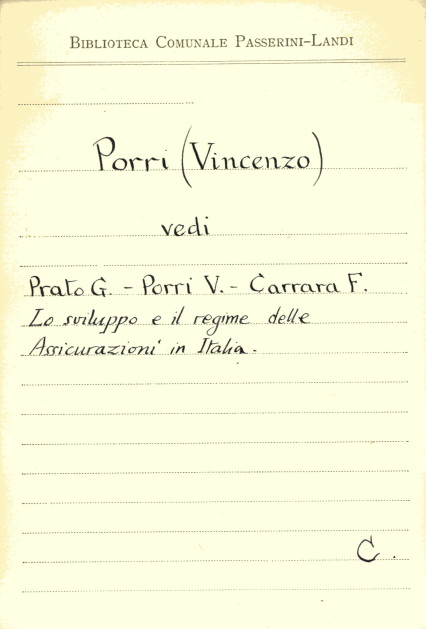 BIBLIOTECA COMUNALE PASSERINI-LANDI
Porri (Vincenzo)
vedi
Prato G. - Porri V. - Carrara F.
Lo sviluppo e il regime delle
Assicurazioni in Italia.
C.